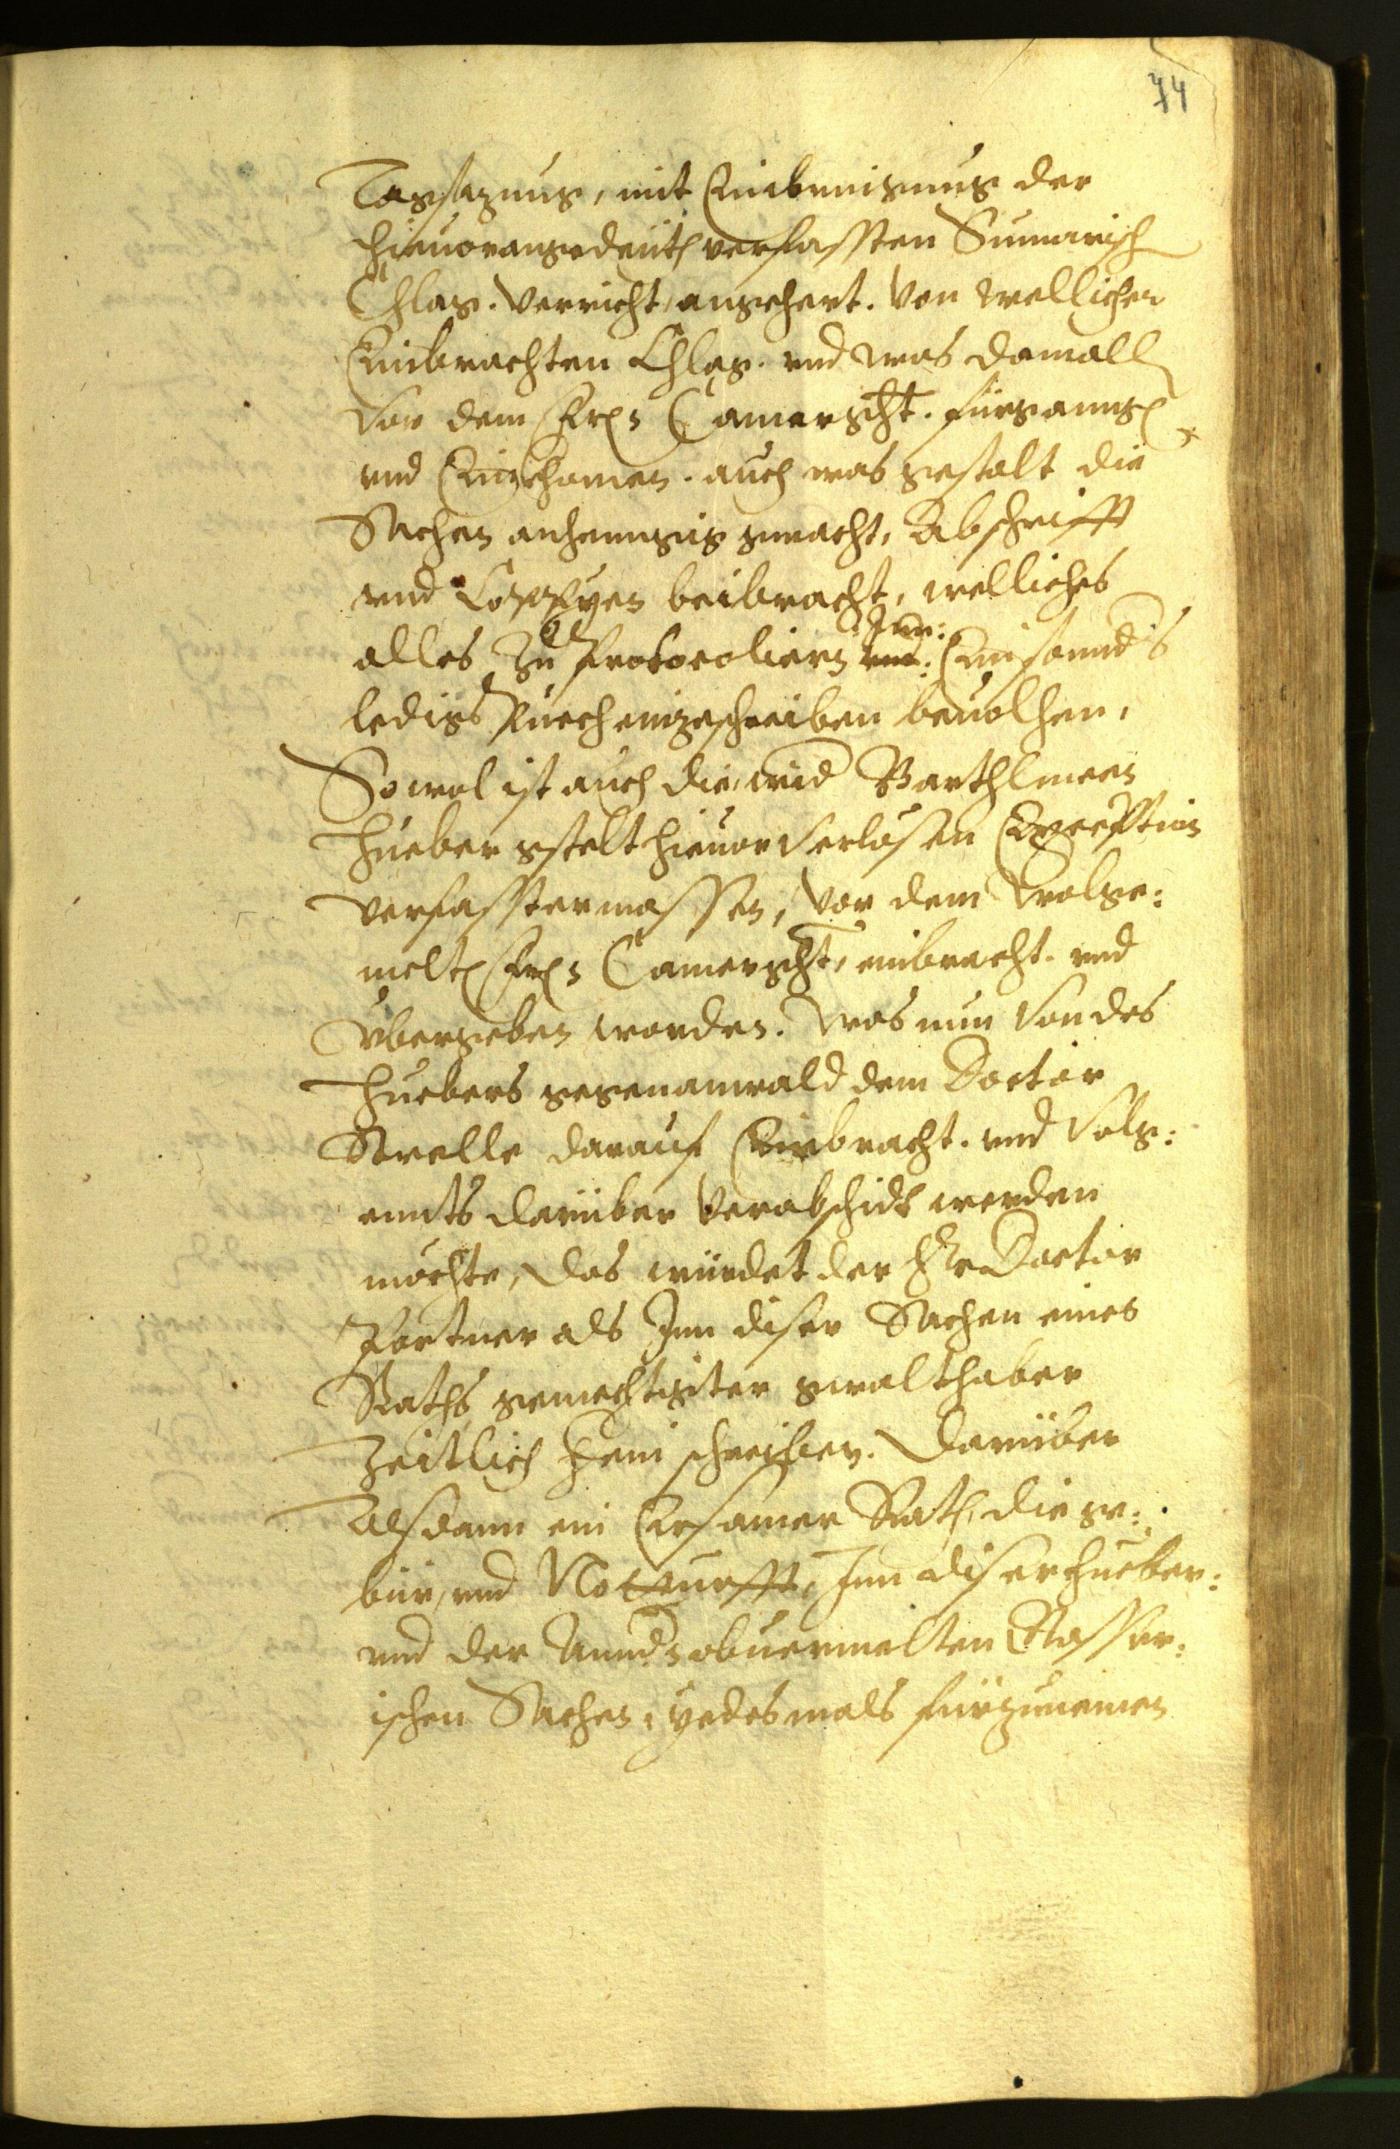 74
Tagsazung, mit Einbringung der
hieuorangedeüt verfassten Sumarisch
Chlag. verricht, angehert. Von wellicher
Einbrachten Chlag. vnd was damall
vor dem Camergcht. fürgangen
vnd Einkhomen. auch was gestalt die
Sachen anhenngig gemacht, Abschrifft
vnd Coppyen beibracht, welliches
alles zu Protocoliern Inn:
ledigs Puech einzeschreiben beuolhen,
So wol ist auch die, wid Barthlmeen
Hueber gstelt hieuor verlösen Exception
verfasstermassen, vor dem Wolge:
melt Camergcht, einbracht. vnd
Vbergeben worden. Was nun von des
Huebers gegenanwald dem Doctor
Strelle darauf Einbracht. vnd volg:
ennts darüber verabschidt werden
möchte, das würdet der Hr Doctor
Portner als Inn diser Sachen eines
Raths gemechtigter gwalthaber
Zeitlich heim schreiben. Darüber
Alsdann ein Ersamer Rath, die ge:
bür, vnd Notturfft, Inn diser Hueber:
vnd der Annd obuermelten Gasser:
ischen Sachen, yedesmals fürzunemen